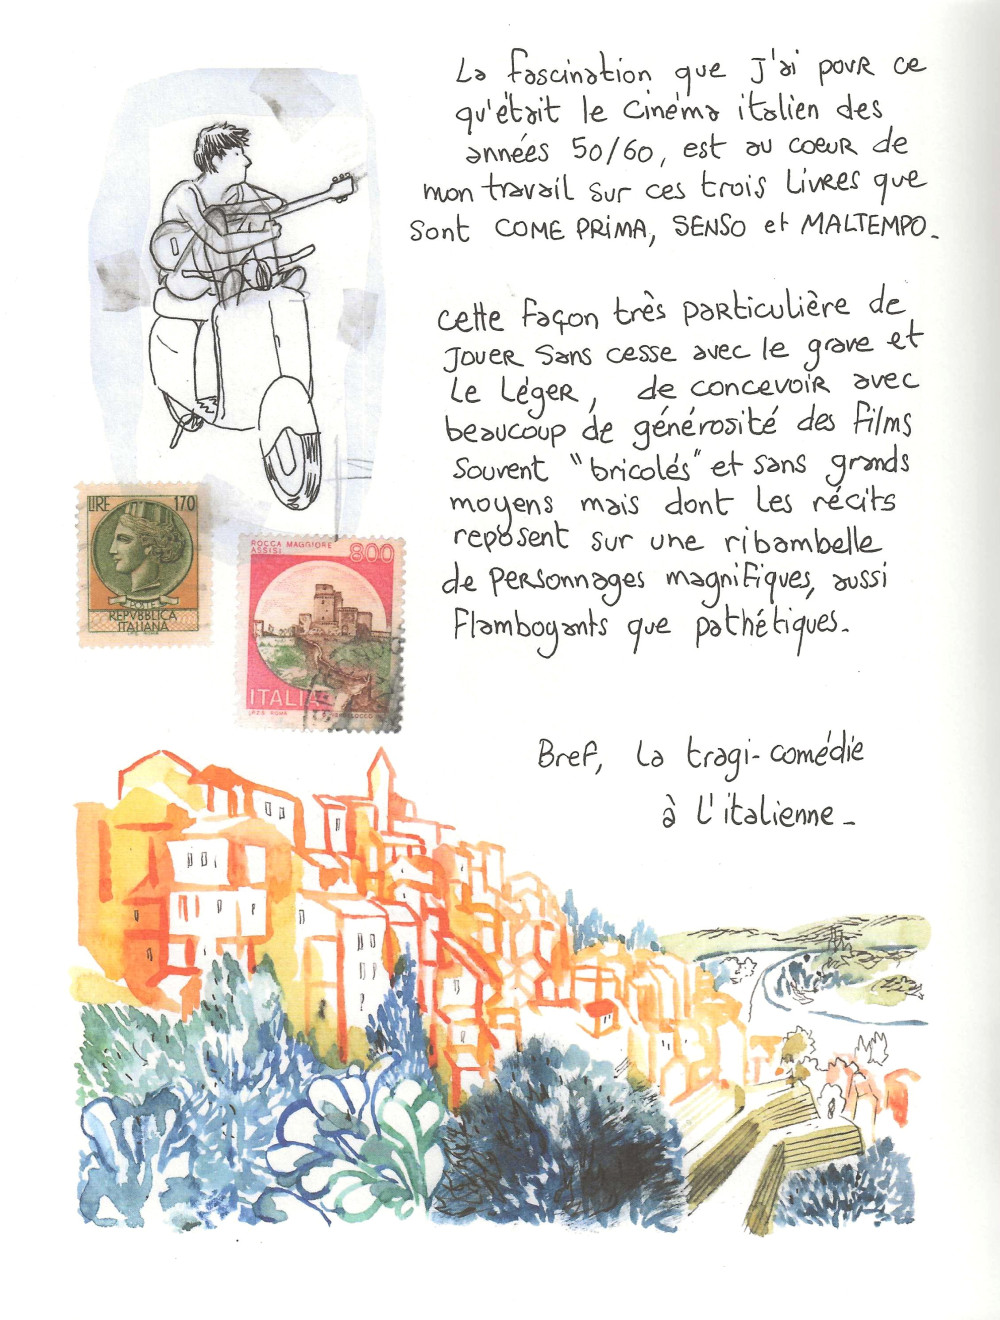 La fascination que j'ai pour ce
qu'était le cinéma italien des
années 50/60, est au coeur de
mon travail sur ces trois livres que
sont COME PRIMA, SENSO et MALTEMPO.
Cette façon très particulière de
jouer sans cesse avec le grave et
le léger, de concevoir avec
beaucoup de générosité des films
souvent "bricolés" et sans grands
moyens mais dont les récits
reposent sur une ribambelle
de personnages magnifiques, aussi
flamboyants que pathétiques.
LIRE 170
POSTE
REPVBBLICA
ITALIANA
ROCCA MAGGIORE
ASSISI
800
ITALIA
I.P.Z.S. ROMA
Bref, la tragi-comédie
à l'italienne.